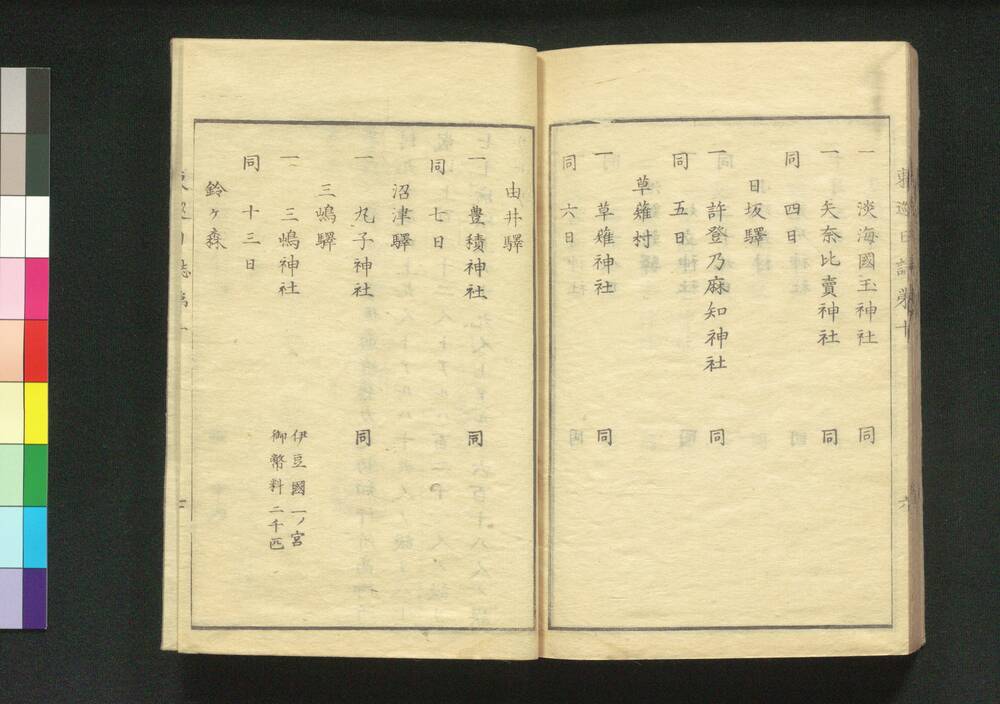 一 淡海國玉神社 同
一 矢奈比賣神社 同
同 四日
日坂驛
一 許登乃麻知神社 同
同 五日
草薙村
一 草薙神社 同
同 六日
由井驛
一 豊積神社 同
同 七日
沼津驛
一 丸子神社 同
三嶋驛
一 三嶋神社 伊豆國一ノ宮
御幣料二千匹
同 十三日
鈴ヶ森